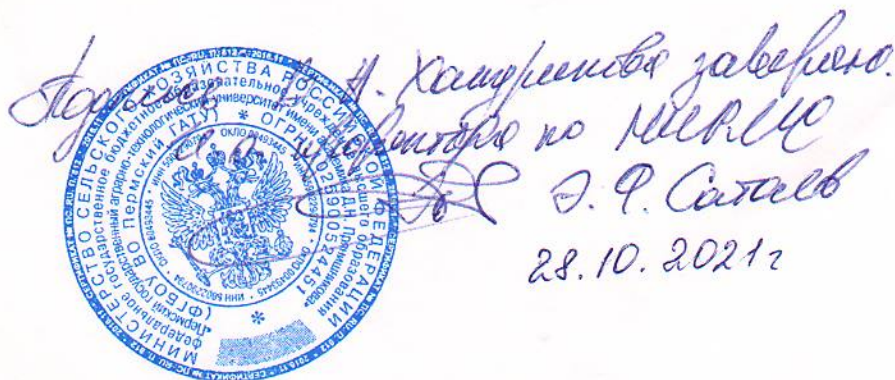 Подпись В. Н. Хандрикова заверено.
И.о. проректора по НИРМС
Э. Ф. Сатаев
28.10.2021г
МИНИСТЕРСТВО СЕЛЬСКОГО ХОЗЯЙСТВА РОССИЙСКОЙ ФЕДЕРАЦИИ
федеральное государственное бюджетное образовательное учреждение высшего образования
«Пермский государственный аграрно-технологический университет имени академика Д.Н. Прянишникова»
(ФГБОУ ВО Пермский ГАТУ) * ОГРН 1025900524451 *
ОКПО 00493445 * ИНН 5902290794